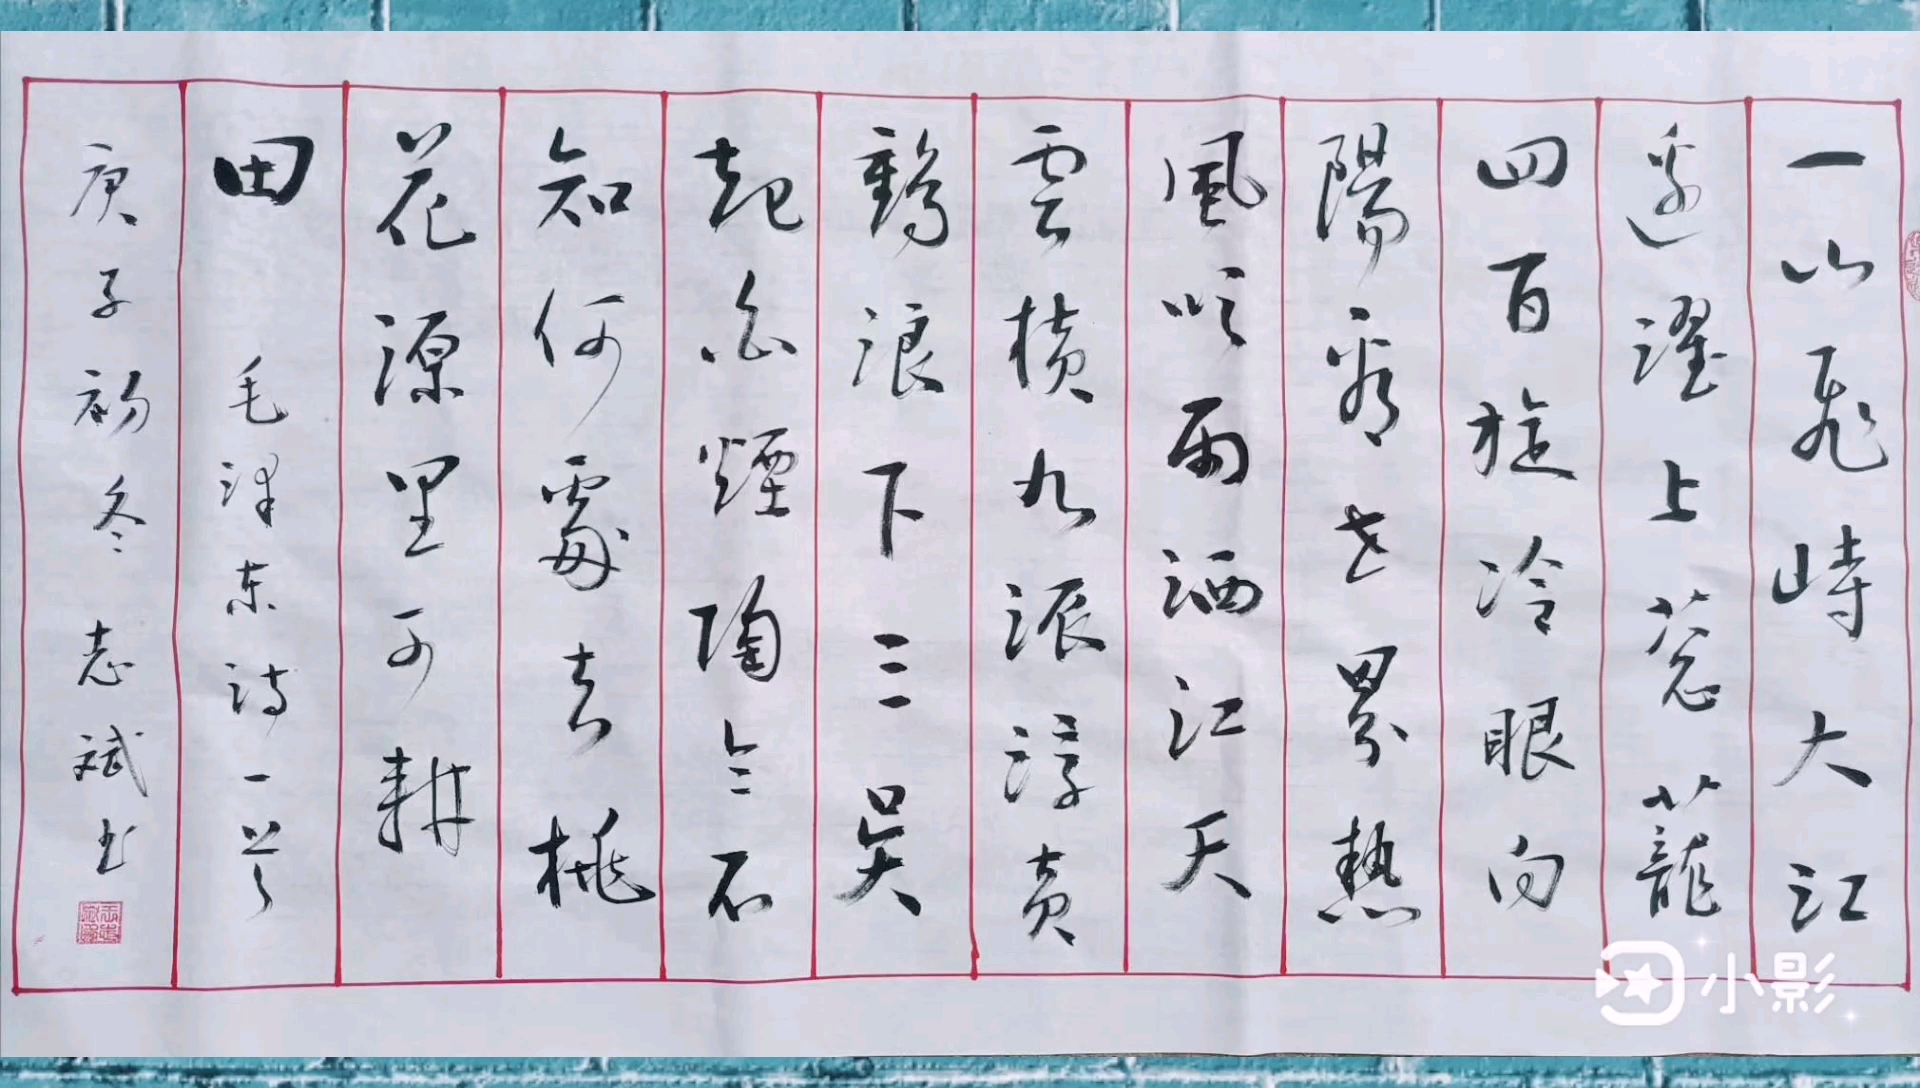 一山飛峙大江
邊濯上葱蘢
四百旋冷眼向
陽看世界熱
風吹雨洒江天
雲横九派浮黄
鶴浪下三吴
起白煙陶令不
知何處去桃
花源里可耕
田 毛泽东诗一首
庚子初冬志斌书
小影